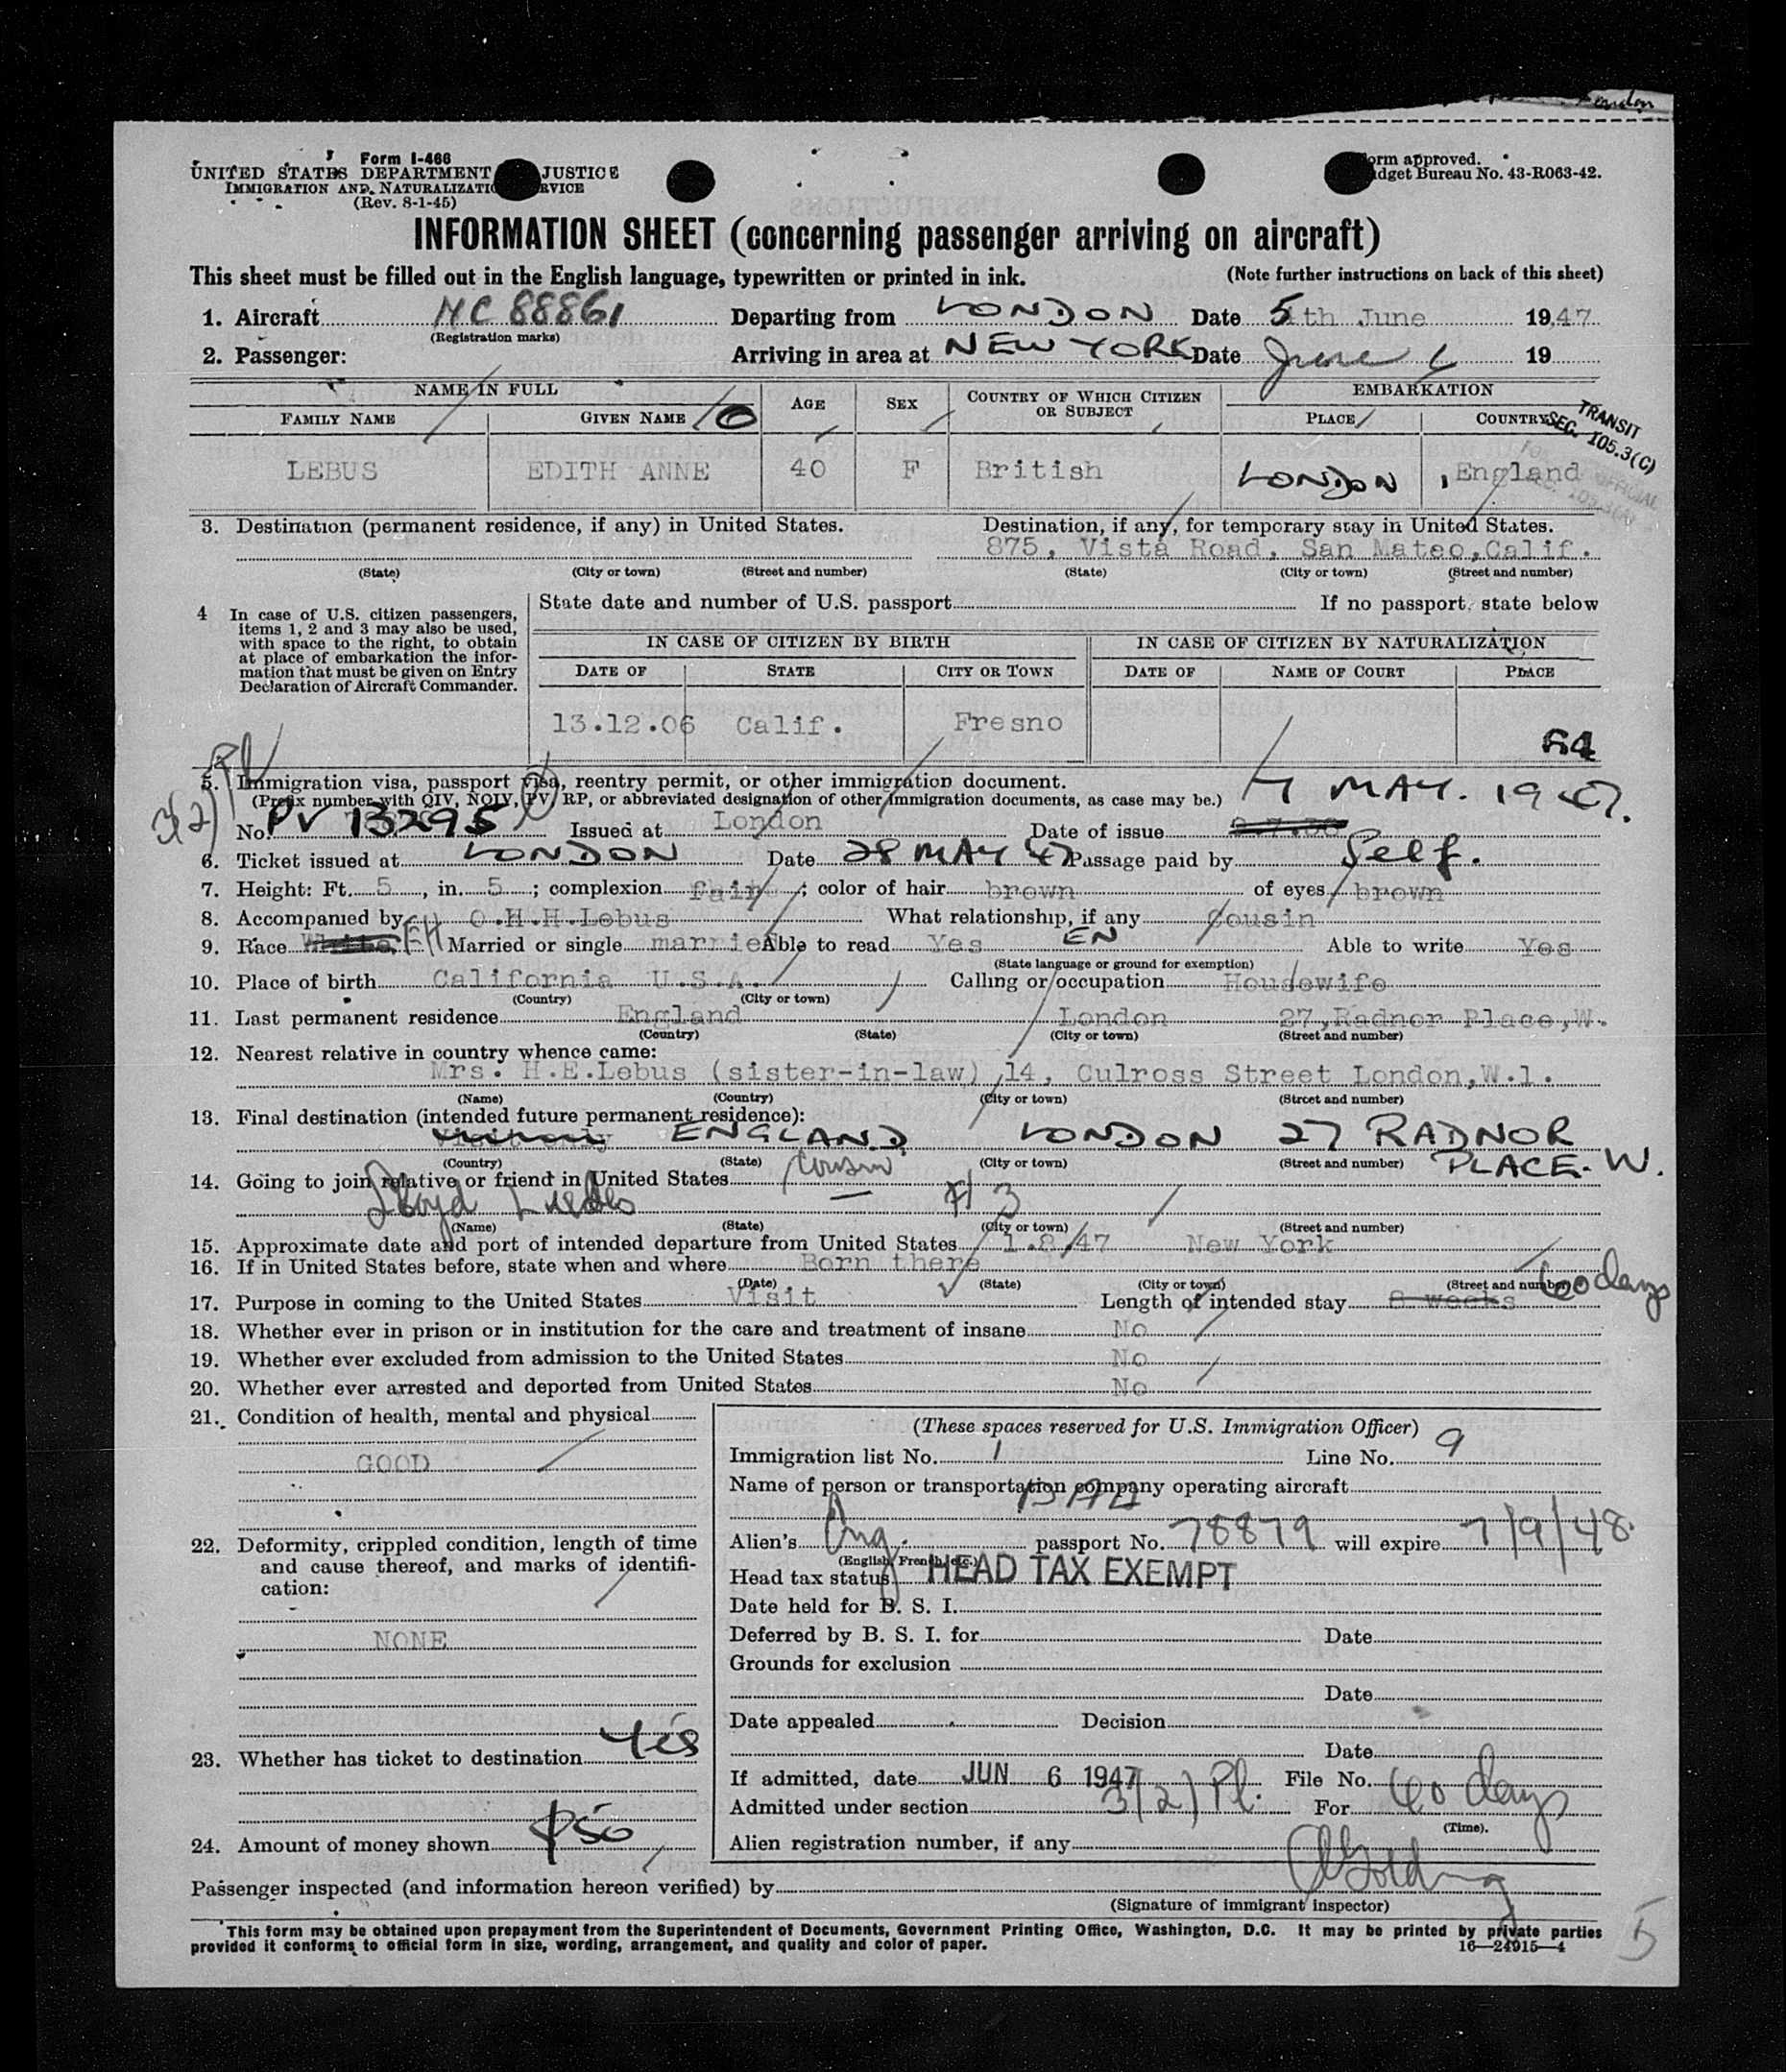 London
Form I-466
UNITED STATES DEPARTMENT JUSTICE
IMMIGRATION AND NATURALIZATIO RVICE
(Rev. 8-1-45)
orm approved.
dget Bureau No. 43-R063-42.
INFORMATION SHEET (concerning passenger arriving on aircraft)
This sheet must be filled out in the English language, typewritten or printed in ink. (Note further instructions on back of this sheet)
1. Aircraft NC 88861 Departing from LONDON Date 5th June 1947
(Registration marks)
2. Passenger: Arriving in area at NEW YORK Date June 6 19
NAME IN FULL AGE SEX COUNTRY OF WHICH CITIZEN OR SUBJECT EMBARKATION
FAMILY NAME GIVEN NAME PLACE COUNTRY
TRANSIT
SEC. 105.3(C)
LEBUS EDITH ANNE 40 F British LONDON England
3. Destination (permanent residence, if any) in United States. Destination, if any, for temporary stay in United States.
875, Vista Road, San Mateo, Calif.
(State) (City or town) (Street and number) (State) (City or town) (Street and number)
4 In case of U.S. citizen passengers, items 1, 2 and 3 may also be used, with space to the right, to obtain at place of embarkation the information that must be given on Entry Declaration of Aircraft Commander.
State date and number of U.S. passport If no passport, state below
IN CASE OF CITIZEN BY BIRTH IN CASE OF CITIZEN BY NATURALIZATION
DATE OF STATE CITY OR TOWN DATE OF NAME OF COURT PLACE
13.12.06 Calif. Fresno
5. Immigration visa, passport visa, reentry permit, or other immigration document.
(Prefix number with QIV, NQIV, PV, RP, or abbreviated designation of other immigration documents, as case may be.) 7 MAY. 1947.
3(2) No. PV 13295 Issued at London Date of issue
6. Ticket issued at LONDON Date 28 MAY 47 Passage paid by Self.
7. Height: Ft. 5, in. 5; complexion fair; color of hair brown of eyes brown
8. Accompanied by O.H.H.Lebus What relationship, if any Cousin
9. Race White Married or single married Able to read Yes EN Able to write Yes
(State language or ground for exemption)
10. Place of birth California U.S.A. Calling or occupation Housewife
(Country) (City or town)
11. Last permanent residence England London 27,Radnor Place,W.
(Country) (State) (City or town) (Street and number)
12. Nearest relative in country whence came:
Mrs. H.E.Lebus (sister-in-law) 14, Culross Street London,W.1.
(Name) (Country) (City or town) (Street and number)
13. Final destination (intended future permanent residence):
ENGLAND LONDON 27 RADNOR PLACE. W.
(Country) (State) (City or town) (Street and number)
14. Going to join relative or friend in United States cousin
Lloyd
(Name) (State) (City or town) (Street and number)
15. Approximate date and port of intended departure from United States 1.8.47 New York
16. If in United States before, state when and where Born there
(Date) (State) (City or town) (Street and number)
17. Purpose in coming to the United States Visit Length of intended stay 8 weeks 60 days
18. Whether ever in prison or in institution for the care and treatment of insane No
19. Whether ever excluded from admission to the United States No
20. Whether ever arrested and deported from United States No
21. Condition of health, mental and physical
GOOD
22. Deformity, crippled condition, length of time and cause thereof, and marks of identification:
NONE
23. Whether has ticket to destination Yes
24. Amount of money shown $50
(These spaces reserved for U.S. Immigration Officer)
Immigration list No. 1 Line No. 9
Name of person or transportation company operating aircraft
PAA
Alien's Eng. passport No. 78879 will expire 7/9/48
(English, French, etc.)
Head tax status HEAD TAX EXEMPT
Date held for B. S. I.
Deferred by B. S. I. for Date
Grounds for exclusion
Date
Date appealed Decision
Date
If admitted, date JUN 6 1947 File No.
Admitted under section 3(2) Pl. For 60 days
(Time).
Alien registration number, if any
Passenger inspected (and information hereon verified) by
(Signature of immigrant inspector)
This form may be obtained upon prepayment from the Superintendent of Documents, Government Printing Office, Washington, D.C. It may be printed by private parties
provided it conforms to official form in size, wording, arrangement, and quality and color of paper. 16—24915—4